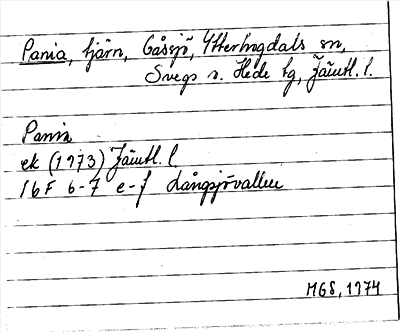 Pania, tjärn, Gåssjö, Ytterhogdals sn,
Svegs o. Hede tg, Jämtl. l.
Pania
ek (1973) Jämtl. l
16F 6-7 e-f Långsjövallen
MGS, 1974